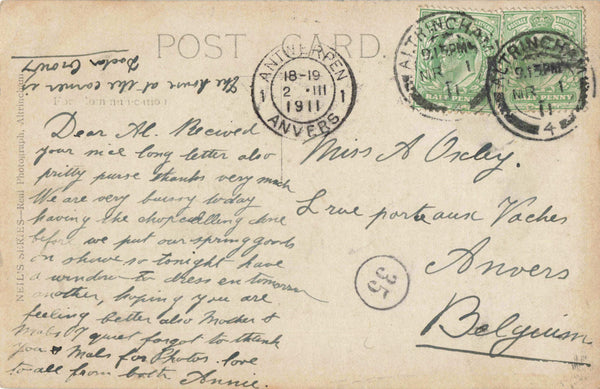 POST CARD
ALTRINCHAM
9.15 PM
MR 1
11
ALTRINCHAM
9.15 PM
MR 1
11
4
HALF PENNY
HALF PENNY
ANTWERPEN
18-19
1 2 III 1
1911
ANVERS
The house at the corner is
Doctor
For Communication
Dear Al. Recived
your nice long letter also
pritty purse thanks very much
We are very bussy today
having the shop celling done
before we put our spring goods
on show so tonight have
a window to dress en tomorrow
another, hoping you are
feeling better also Mother &
Mabs I quiet forgot to thank
you & Mabs for Photos. love
to all from both Annie.
Miss A Oxley.
2 rue porte aux Vaches
Anvers
Belguim
35
NEIL'S SERIES—Real Photograph, Altrincham